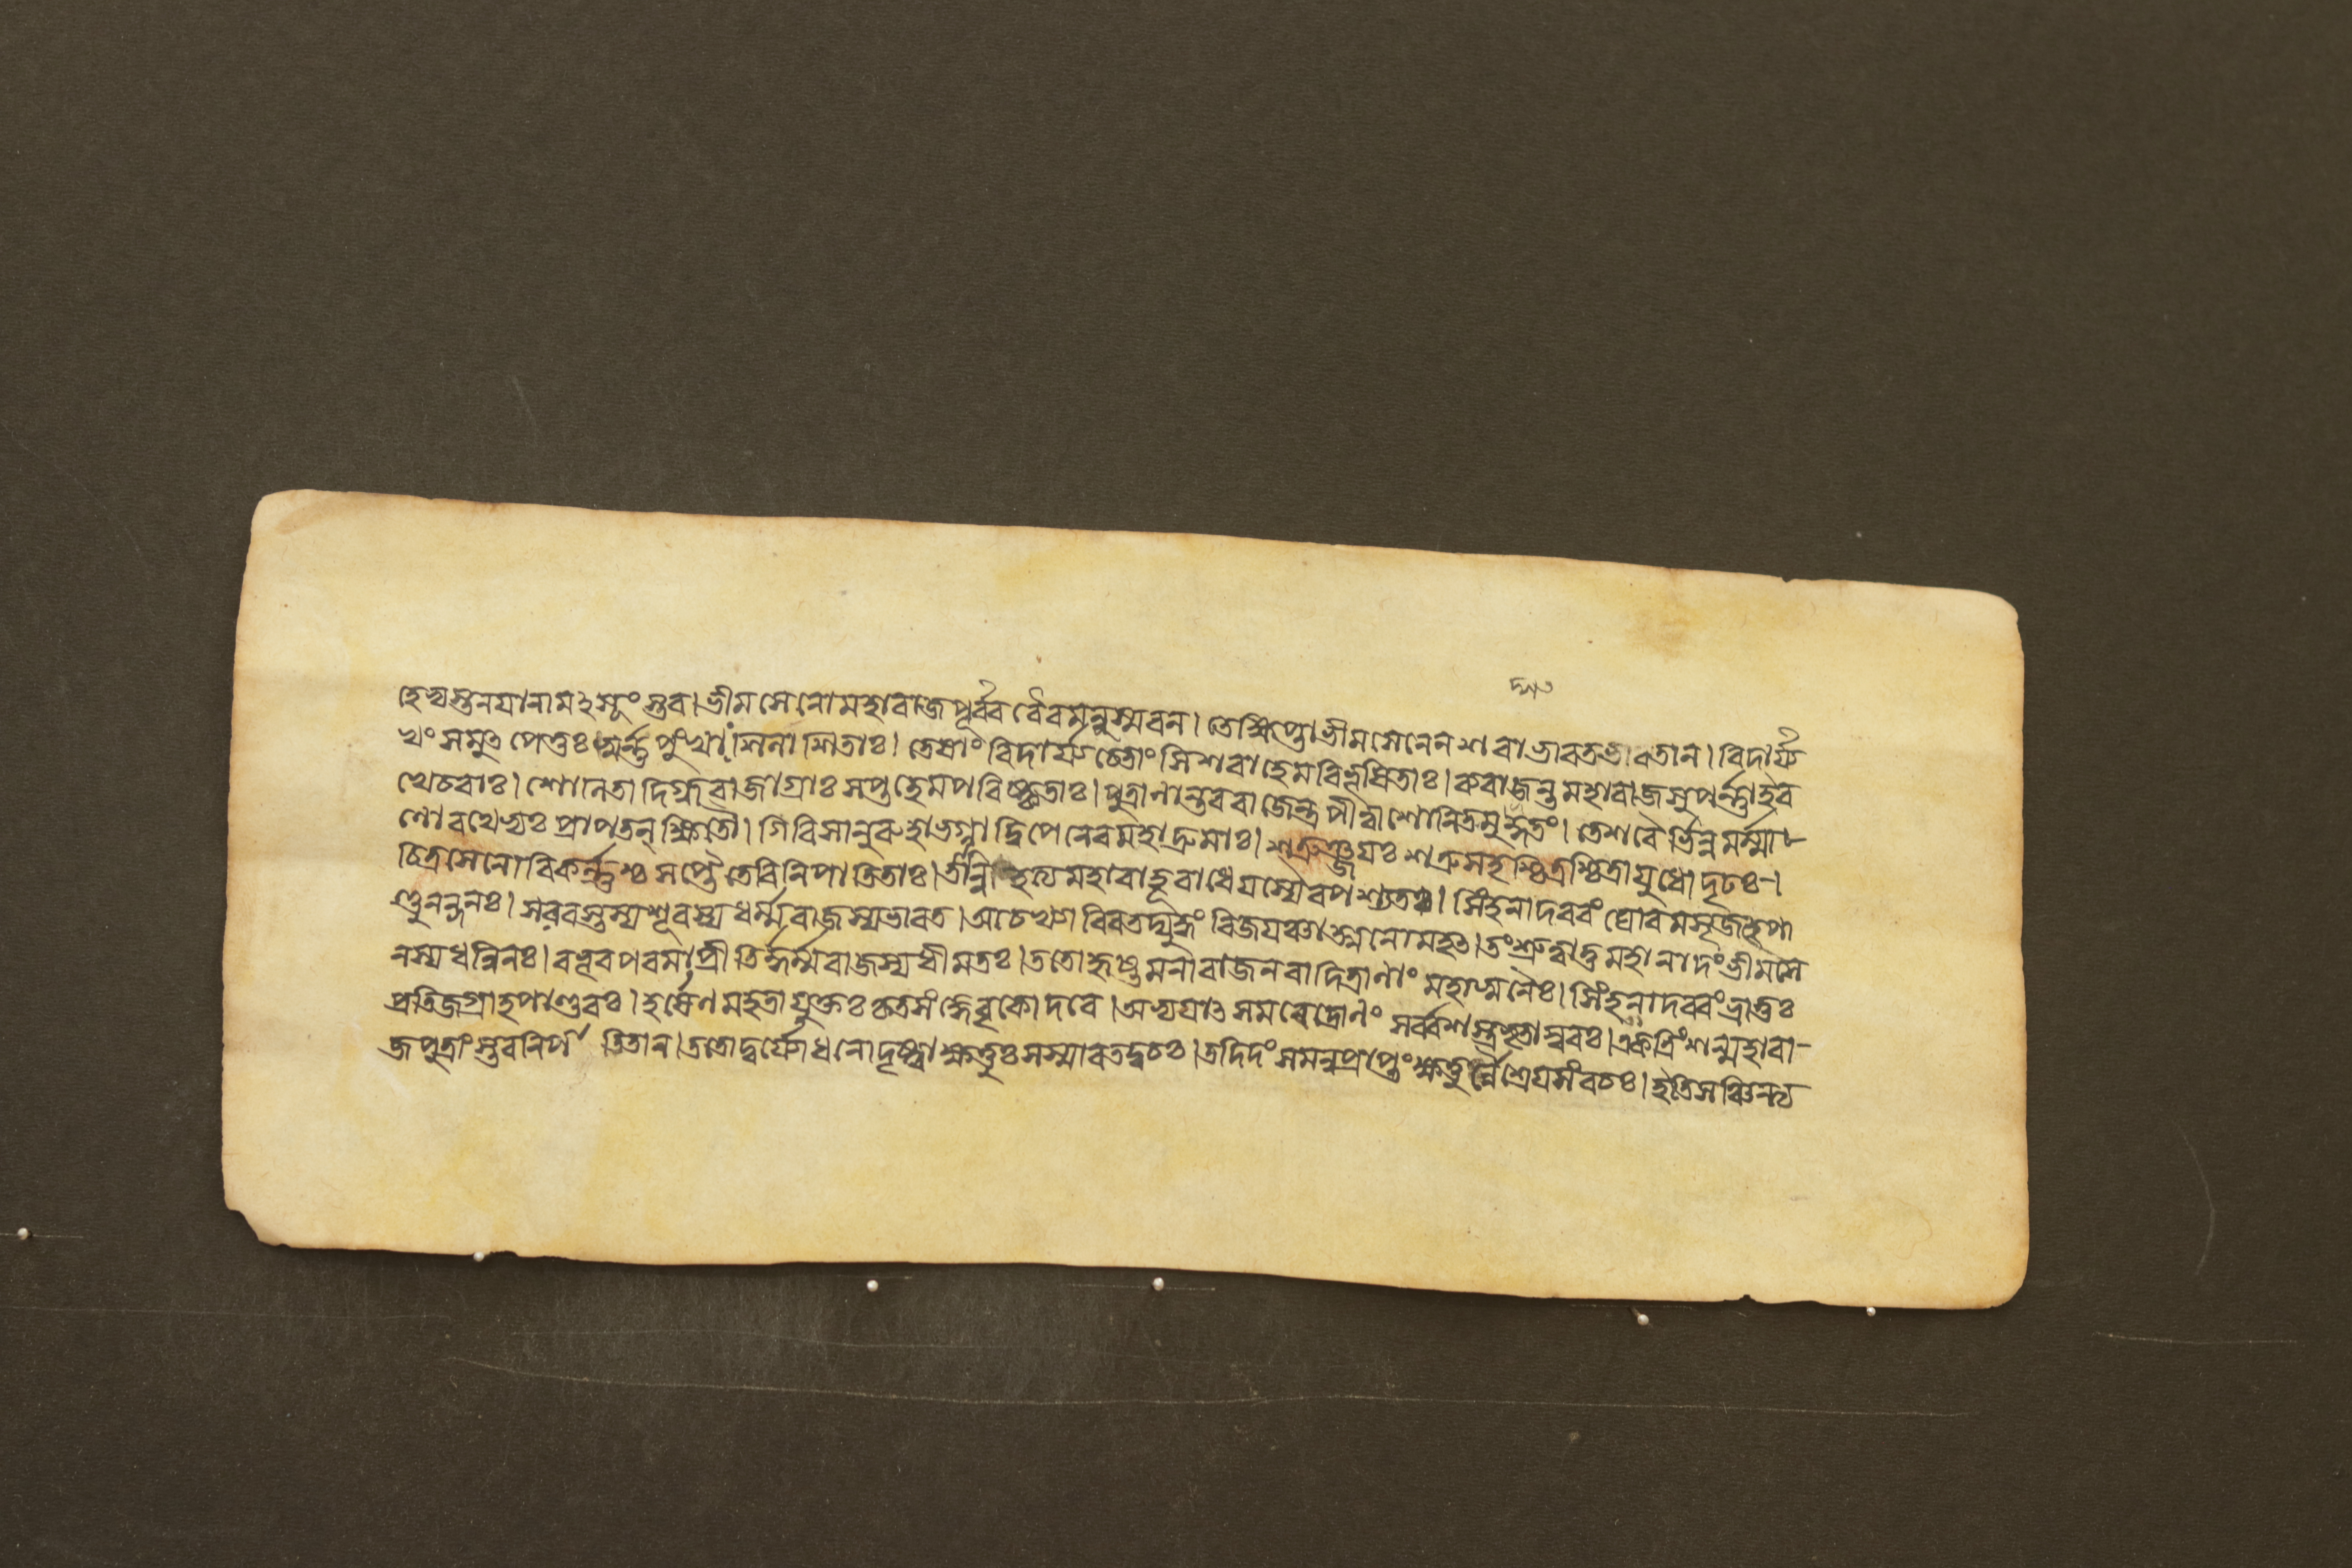 হেভ্যস্তনয়ানামঽসূংস্তব। ভীমসেনোমহারাজপূর্ব্ববৈরমনুস্মরন। তেক্ষিপ্তোভীমসেনেনশরাভারতভারতান। বিদার্য্য
খং সমুত্পেতুঃ স্বর্ণ্ণপুংখাঃ সিলাসিতাঃ। তেষাং বিদার্য্যচেতাংসিশরাহেমবিভূষিতাঃ। ব্যরাজন্তমহারাজসুপর্ণ্ণাইব
খেচরাঃ। শোনিতাদিগ্ধরাজাগ্রাঃ সপ্তহেমপরিষ্কৃতাঃ। পুত্রানান্তবরাজেন্দ্রপীত্বাশোনিতমুদ্গতং। তেশরৈর্ভিন্নমর্ম্মা-
ণোরথেভ্যঃ প্রাপতন্ক্ষিতৌ। গিরিসানুরুহাভগ্নাদ্বিপেনেবমহাদ্রুমাঃ। শত্রুঞ্জয়ঃ শত্রুসহশ্চিত্রশ্চিত্রায়ুধোদৃঢঃ-।
চিত্রসেনোবিকর্ণ্ণশ্চ সপ্তৈতেবিনিপাতিতাঃ। তান্নিহত্যমহাবাহূরাধেয়স্যৈবপশ্যতঃ। সিংহনাদরবং ঘোরমসৃজত্পা
ণ্ডুনন্দনঃ। সরবস্তস্যশূরস্যধর্ম্মরাজস্যভারত। আচখ্যাবিবতদ্যুদ্ধং বিজয়ঞ্চাত্মনোমহৎ। তংশ্রুত্বাতুমহানাদংভীমসে
নস্যধন্বিনঃ। বভূবপরমাপ্রীতির্দ্ধর্ম্মরাজস্যধীমতঃ। ততোহৃষ্টমনারাজনবাদিত্রানাং মহাস্বনৈঃ। সিংহনাদরবংভ্রাতুঃ
প্রতিজগ্রাহপাণ্ডবঃ। হর্ষেণমহতাযুক্তঃ কৃতসংজ্ঞেবৃকোদরে। অভ্যয়াৎ সমরেদ্রোনং সর্ব্বশস্ত্রভৃতাম্বরঃ। একত্রিংশন্মহারা-
জপুত্রাংস্তবনিপাতিতান। ততোদুর্য্যোধনোদৃষ্ট্বাক্ষত্তুঃ সস্মারতদ্বচঃ। তদিদং সমনুপ্রাপ্তং ক্ষত্তুর্ন্নৈশ্রেয়সংবচঃ। ইতিসঞ্চিন্ত্য